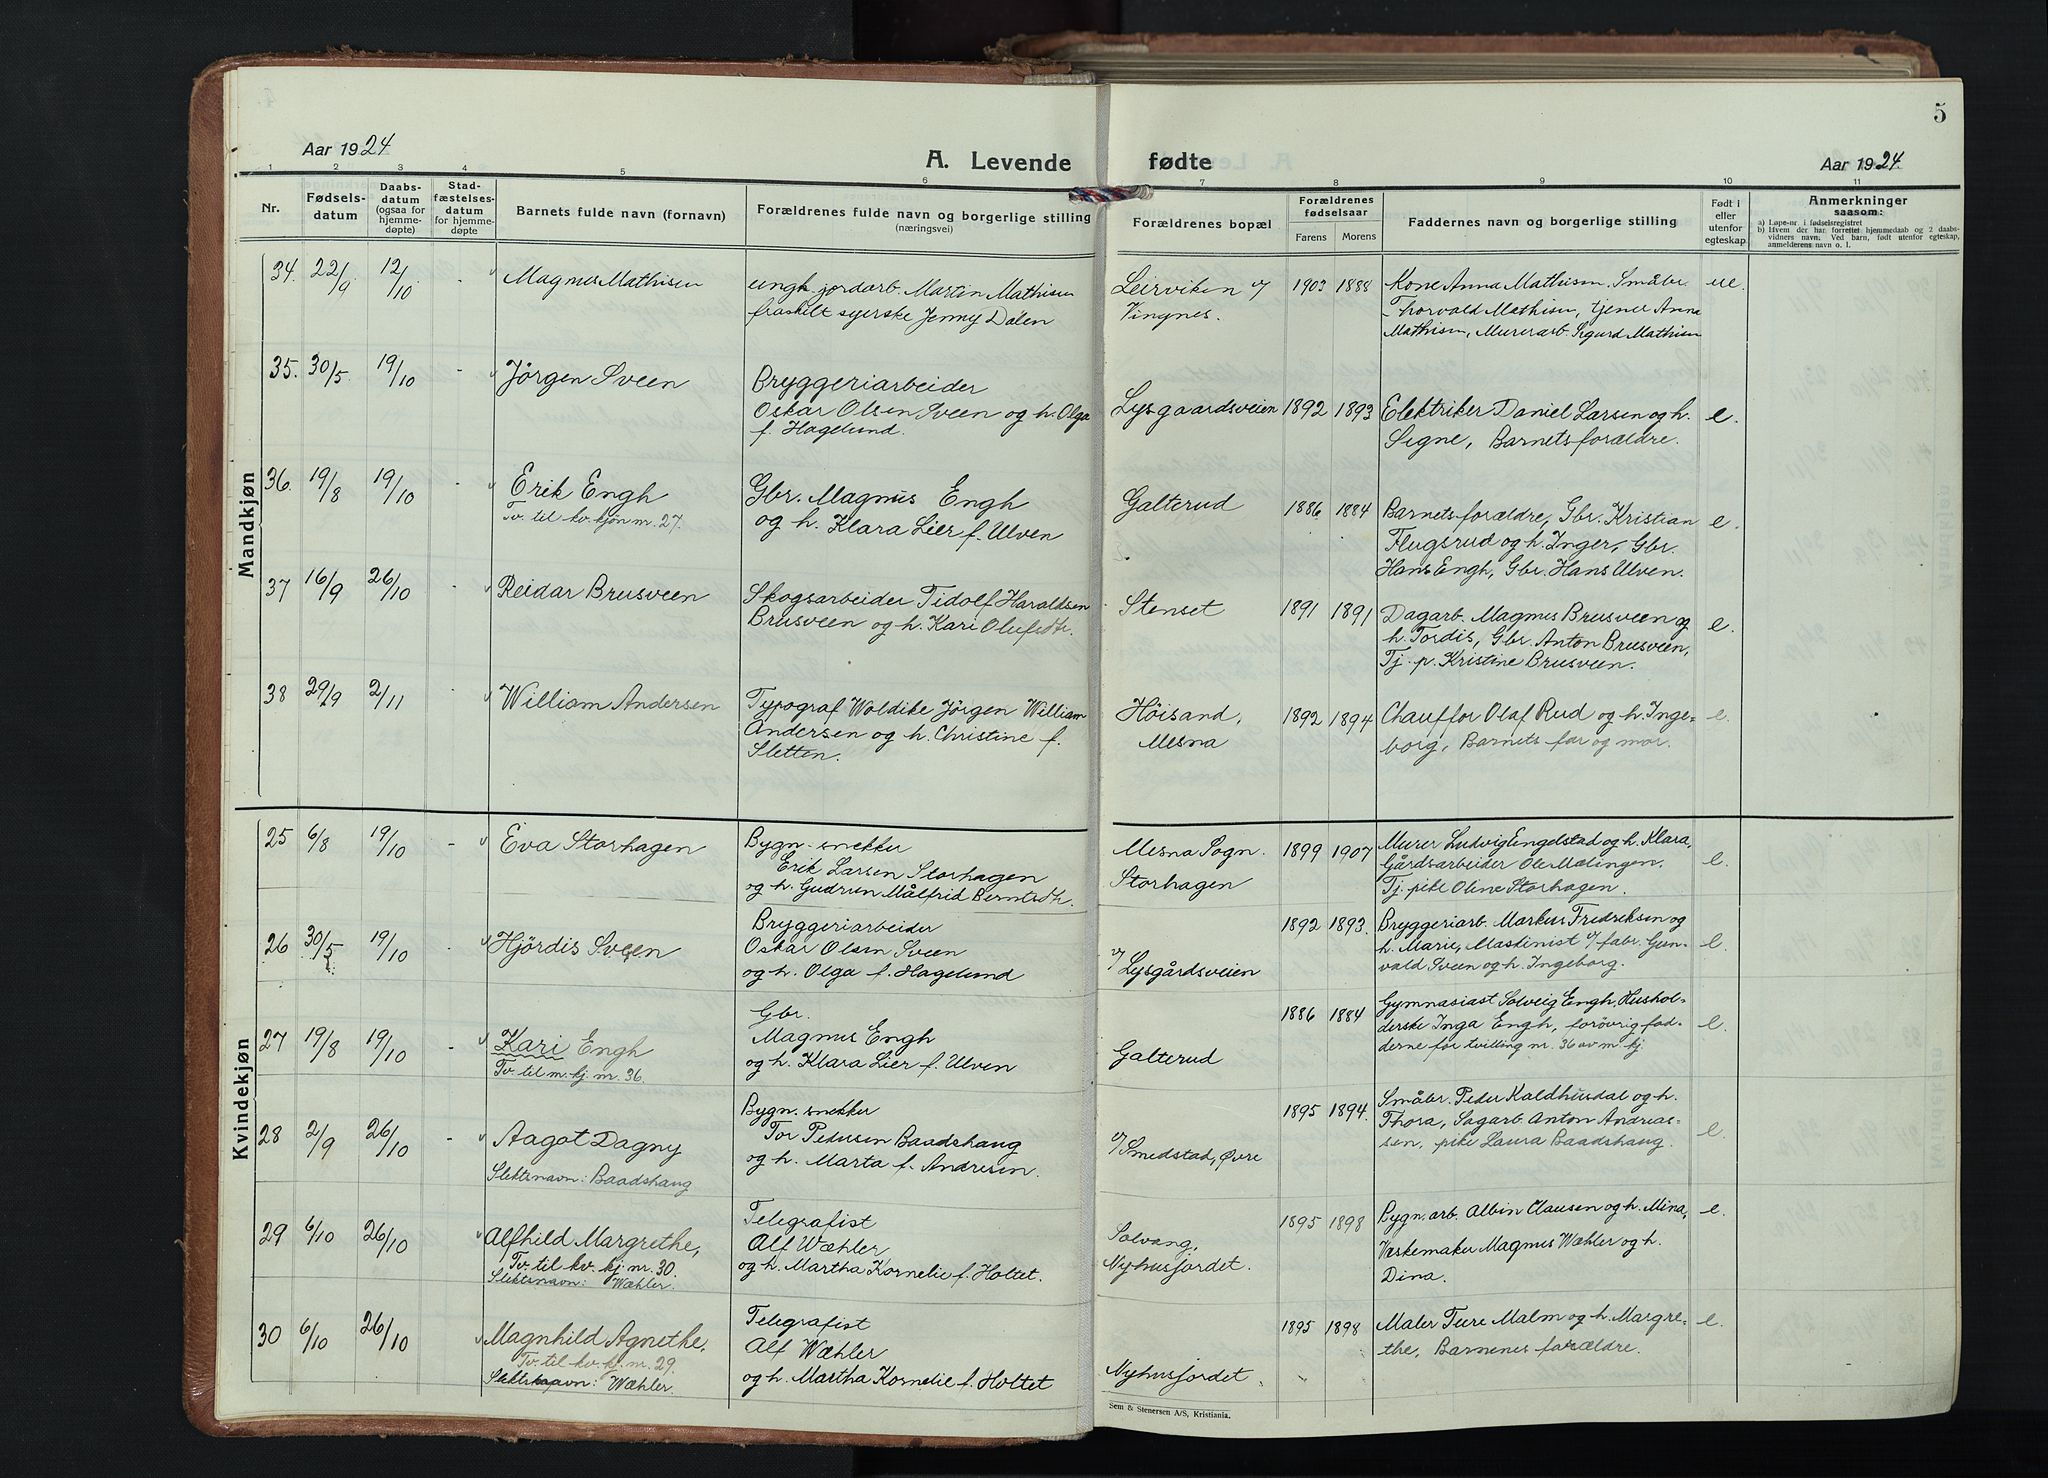 5
Aar 1924
A. Levende
fødte
Aar 1924
1 2 3 4 5 6 7 8 9 10 11
Nr.
Fødsels-
datum
Daabs-
datum
(ogsaa for
hjemme-
døpte)
Stad-
fæstelses-
datum
for hjemme-
døpte
Barnets fulde navn (fornavn)
Forældrenes fulde navn og borgerlige stilling
(næringsvei)
Forældrenes bopæl
Forældrenes
fødselsaar
Farens Morens
Faddernes navn og borgerlige stilling
Født i
eller
utenfor
egteskap.
Anmerkninger
saasom:
a) Løpe-nr. i fødselsregistret
b) Hvem der har forrettet hjemmedaab og 2 daabs-
vidners navn. Ved barn, født utenfor egteskap,
anmelderens navn o. l.
Mandkjøn
34. 22/9 12/10 - Magnus Mathisen
ungk. jordarb. Martin Mathisen
fraskilt syerske Jenny Dalen
Leirviken v/
Vingnes.
1903 1888
Kone Anna Mathisen. Småbr.
Thorvald Mathisen, tjener Anna
Mathisen, Murerarb. Sigurd Mathisen
ue.
35. 30/5 19/10 - Jörgen Sveen
Bryggeriarbeider
Oskar Olsen Sveen og h. Olga
f. Hagelund.
Lysgaardsveien 1892 1893
Elektriker Daniel Larsen og h.
Signe, Barnets forældre.
e.
36. 19/8 19/10 - Erik Engh
Tv. til kv. kjön nr. 27.
Gbr. Magnus Engh
og h. Klara Lier f. Ulven
Galterud 1886 1884
Barnets forældre, Gbr. Kristian
Flugsrud og h. Inger, Gbr.
Hans Engh, Gbr. Hans Ulven.
e.
37 16/9 26/10 - Reidar Brusveen
Skogsarbeider Tidolf Haraldsen
Brusveen og h. Kari Olufsdtr.
Stenset 1891 1891
Dagarb. Magnus Brusveen og
h. Tordis, Gbr. Anton Brusveen,
Tj. p. Kristine Brusveen.
e.
38 29/9 2/11 - William Andersen
Typograf Woldike Jörgen William
Andersen og h. Christine f.
Sletten.
Höisand,
Mesna
1892 1894
Chauffør Olaf Rud og h. Inge-
borg, Barnets far og mor.
e.
Kvindekjøn
25 6/8 19/10 - Eva Storhagen
Bygn. snekker
Erik Larsen Storhagen
og h. Gudrun Målfrid Berntsdtr.
Mesna Sogn.
Storhagen
1899 1907
Murer Ludvig Engelstad og h. Klara,
Gårdsarbeider Ole Mælingen,
Tj. pike Oline Storhagen.
e.
26 30/5 19/10 Hjördis Sveen
Bryggeriarbeider
Oskar Olsen Sveen
og h. Olga f. Hagelund
v/ Lysgårdsveien
1892 1893.
Bryggeriarb. Markus Fredriksen og
h. Marie, Maskinist v/ fabr. Gun-
vald Sveen og h. Ingeborg.
e.
27 19/8 19/10 - Kari Engh
Tv. til m. kj. nr. 36.
Gbr.
Magnus Engh
og h. Klara Lier f. Ulven
Galterud
1886 1884
Gymnasiast Solveig Engh, Hushol-
derske Inga Engh, forövrig fad-
derne for tvilling nr. 36 av m. kj.
e.
28 2/9 26/10 - Aagot Dagny
Slektsnavn: Baadshaug
Bygn. snekker
Tor Pedersen Baadshaug
og h. Marta f. Andresen.
v/ Smedstad, Øvre
1895 1894.
Småbr. Peder Kaldhusdal og h.
Thora, Sagarb. Anton Andreas-
sen, pike Laura Baadshaug.
e.
29 6/10 26/10 Alfhild Margrethe,
Tv. til kv. kj. nr. 30.
Slektsnavn: Wæhler.
Telegrafist
Alf Wæhler
og h. Martha Kornelie f. Holtet.
Solvang,
Nyhusjordet.
1895 1898
Bygn. arb. Albin Clausen og h. Mina,
Væskemaker Magnus Wæhler og h.
Dina.
e.
30 6/10 26/10 Magnhild Agnethe,
Tv. til kv. kj. nr. 29.
Slektsnavn: Wæhler.
Telegrafist
Alf Wæhler
og h. Martha Kornelie f. Holtet
Nyhusjordet.
1895 1898
Maler Ture Malm og h. Margre-
the, Barnenes forældre.
e.
Sem & Stenersen A/S, Kristiania.